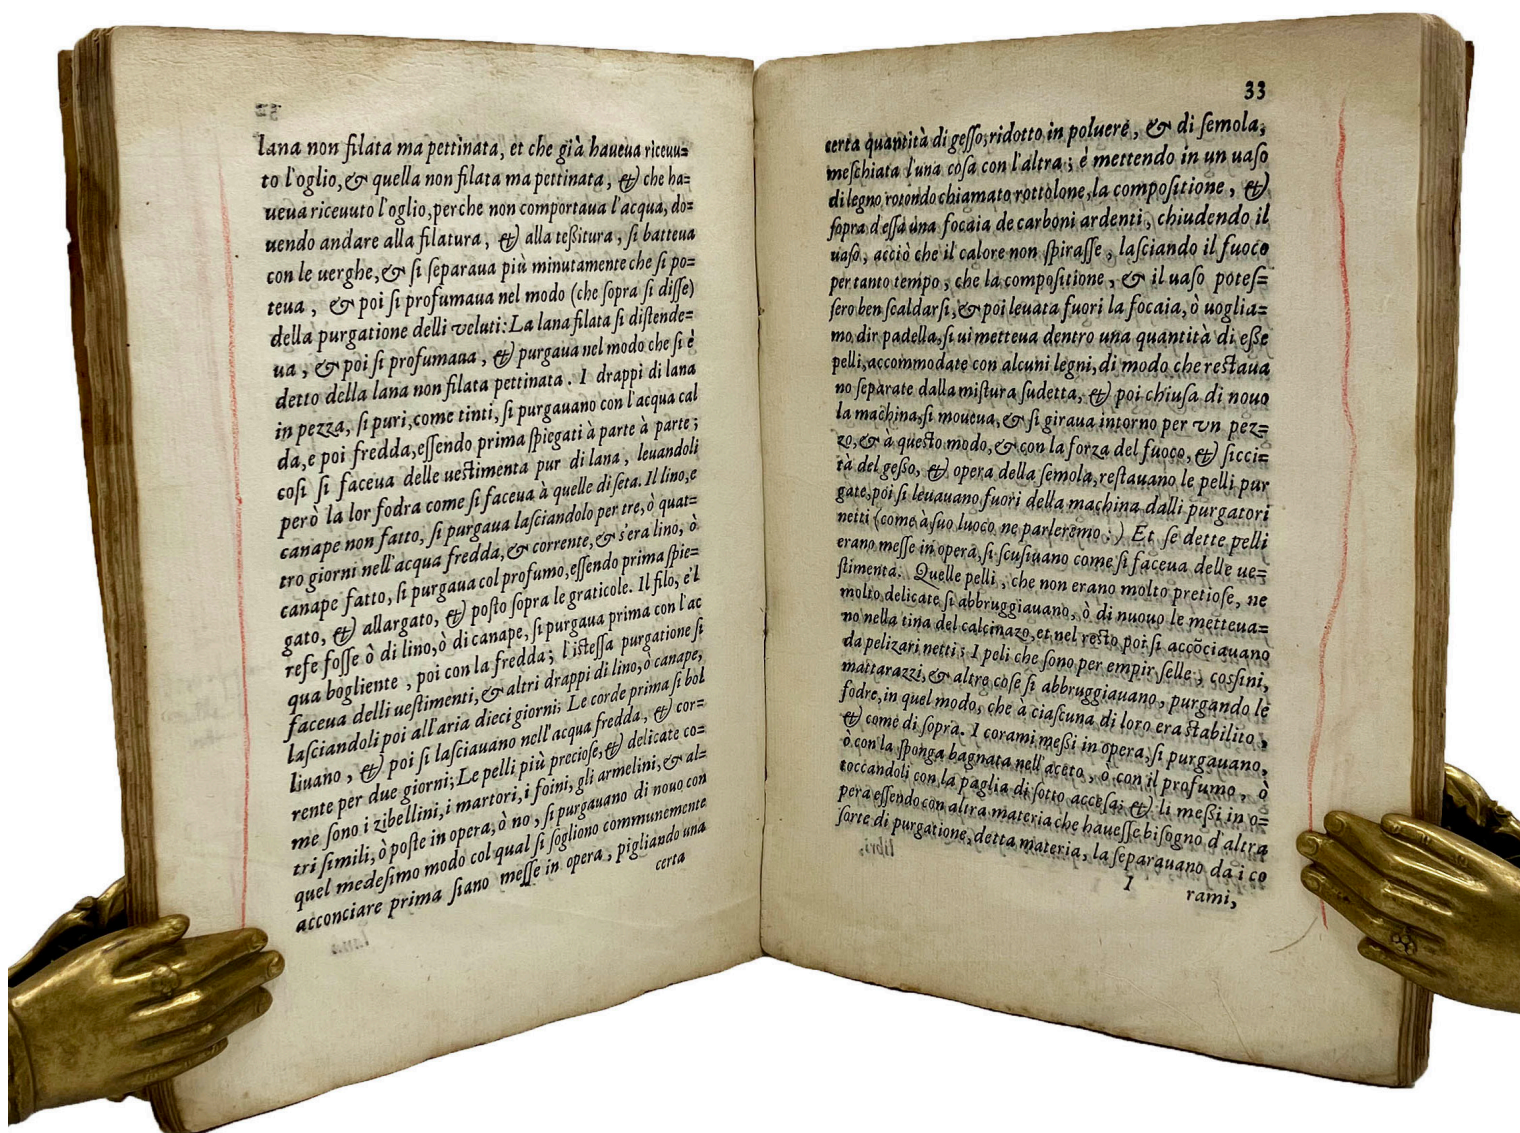 lana non filata ma pettinata, et che già haueua riceuu=
to l'oglio, & quella non filata ma pettinata, & che ha=
ueua riceuuto l'oglio, perche non comportaua l'acqua, do=
uendo andare alla filatura, & alla teßitura, si batteua
con le uerghe, & si separaua più minutamente che si po=
teua, & poi si profumaua nel modo (che sopra si disse)
della purgatione delli veluti: La lana filata si distende=
ua, & poi si profumaua, & purgaua nel modo che si è
detto della lana non filata pettinata. I drappi di lana
in pezza, si puri, come tinti, si purgauano con l'acqua cal
da, e poi fredda, essendo prima spiegati à parte à parte;
cosi si faceua delle uestimenta pur di lana, leuandoli
però la lor fodra come si faceua à quelle di seta. Il lino, e
canape non fatto, si purgaua lasciandolo per tre, ò quat=
tro giorni nell'acqua fredda, & corrente, & s'era lino, ò
canape fatto, si purgaua col profumo, essendo prima spie=
gato, & allargato, & posto sopra le graticole. Il filo, e'l
refe fosse ò di lino, ò di canape, si purgaua prima con l'ac
qua bogliente, poi con la fredda; l'istessa purgatione si
faceua delli uestimenti, & altri drappi di lino, ò canape,
lasciandoli poi all'aria dieci giorni; Le corde prima si bol
liuano, & poi si lasciauano nell'acqua fredda, & cor=
rente per due giorni; Le pelli più preciose, & delicate co=
me sono i zibellini, i martori, i foini, gli armelini, & al=
tri simili, ò poste in opera, ò no, si purgauano di nouo con
quel medesimo modo col qual si sogliono communemente
acconciare prima siano messe in opera, pigliando una
certa
33
certa quantità di gesso, ridotto in poluere, & di semola,
meschiata l'una cosa con l'altra; é mettendo in un uaso
di legno rotondo chiamato rottolone, la compositione, &
sopra d'essa una focaia de carboni ardenti, chiudendo il
uaso, acciò che il calore non spirasse, lasciando il fuoco
per tanto tempo, che la compositione, & il uaso potes=
sero ben scaldarsi, & poi leuata fuori la focaia, ò uoglia=
mo dir padella, si ui metteua dentro una quantità di eße
pelli, accommodate con alcuni legni, di modo che restaua
no separate dalla mistura sudetta, & poi chiusa di nouo
la machina, si moueua, & si giraua intorno per vn pez=
zo, & à questo modo, & con la forza del fuoco, & sicci=
tà del geßo, & opera della semola, restauano le pelli pur
gate, poi si leuauano fuori della machina dalli purgatori
netti (come à suo luoco ne parleremo:) Et se dette pelli
erano messe in opera, si scusiuano come si faceua delle ue=
stimenta. Quelle pelli, che non erano molto pretiose, ne
molto delicate si abbruggiauano, ò di nuouo le metteua=
no nella tina del calcinazo, et nel resto poi si accõciauano
da pelizari netti; I peli che sono per empir selle, cossini,
mattarazzi, & altre cose si abbruggiauano, purgando le
fodre, in quel modo, che à ciascuna di loro era stabilito,
& come di sopra. I corami meßi in opera, si purgauano,
ò con la sponga bagnata nell'aceto, ò con il profumo, ò
toccandoli con la paglia di sotto accesa; & li meßi in o=
pera essendo con altra materia che hauesse bisogno d'altra
sorte di purgatione, detta materia, la separauano da i co
I
rami,